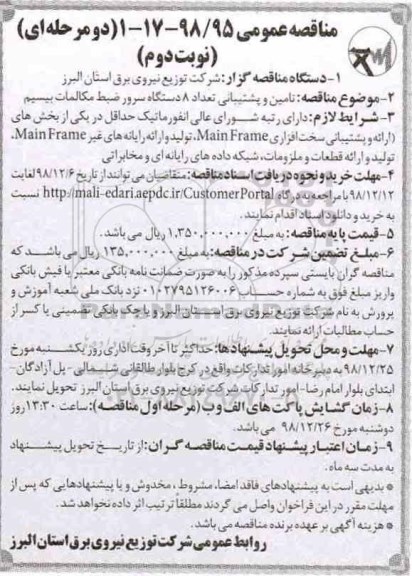 مناقصه عمومی ۹۸/۹۵-۱۷-۱(دو مرحله ای)
(نوبت دوم)
۱-دستگاه مناقصه گزار: شرکت توزیع نیروی برق استان البرز
۲-موضوع مناقصه: تامین و پشتیبانی تعداد ۸ دستگاه سرور ضبط مکالمات بیسیم
۳-شرایط لازم: دارای رتبه شورای عالی انفورماتیک حداقل در یکی از بخش های
(ارائه و پشتیبانی سخت افزاری Main Frame، تولید و ارائه رایانه های غیر Main Frame،
تولید و ارائه قطعات و ملزومات، شبکه داده های رایانه ای و مخابراتی
۴-مهلت خرید و نحوه دریافت اسناد مناقصه: متقاضیان می توانند از تاریخ ۹۸/۱۲/۶ لغایت
۹۸/۱۲/۱۲ با مراجعه به درگاه http://mali-edari.aepdc.ir/CustomerPortal نسبت
به خرید و دانلود اسناد اقدام نمایند.
۵-قیمت پایه مناقصه: به مبلغ ۱,۳۵۰,۰۰۰,۰۰۰ ریال می باشد.
۶-مبلغ تضمین شرکت در مناقصه: به مبلغ ۱۳۵,۰۰۰,۰۰۰ ریال می باشد که
مناقصه گران بایستی سپرده مذکور را به صورت ضمانت نامه بانکی معتبر یا فیش بانکی
واریز مبلغ فوق به شماره حساب ۰۱۰۲۷۹۵۱۲۶۰۰۶ نزد بانک ملی شعبه آموزش و
پرورش به نام شرکت توزیع نیروی برق استان البرز و یا چک بانکی تضمینی یا کسر از
حساب مطالبات ارائه نمایند.
۷-مهلت و محل تحویل پیشنهادها: حداکثر تا آخر وقت اداری روز یکشنبه مورخ
۹۸/۱۲/۲۵ به دبیرخانه امور تدارکات واقع در کرج بلوار طالقانی شمالی-پل آزادگان-
ابتدای بلوار امام رضا-امور تدارکات شرکت توزیع نیروی برق استان البرز تحویل نمایند.
۸-زمان گشایش پاکت های الف و ب (مرحله اول مناقصه): ساعت ۱۳:۳۰ روز
دوشنبه مورخ ۹۸/۱۲/۲۶ می باشد.
۹-زمان اعتبار پیشنهاد قیمت مناقصه گران: از تاریخ تحویل پیشنهاد
به مدت سه ماه.
* بدیهی است به پیشنهادهای فاقد امضا، مشروط، مخدوش و یا پیشنهادهایی که پس از
مهلت مقرر در این فراخوان واصل می گردند مطلقاً ترتیب اثر داده نخواهد شد.
* هزینه آگهی بر عهده برنده مناقصه می باشد.
روابط عمومی شرکت توزیع نیروی برق استان البرز